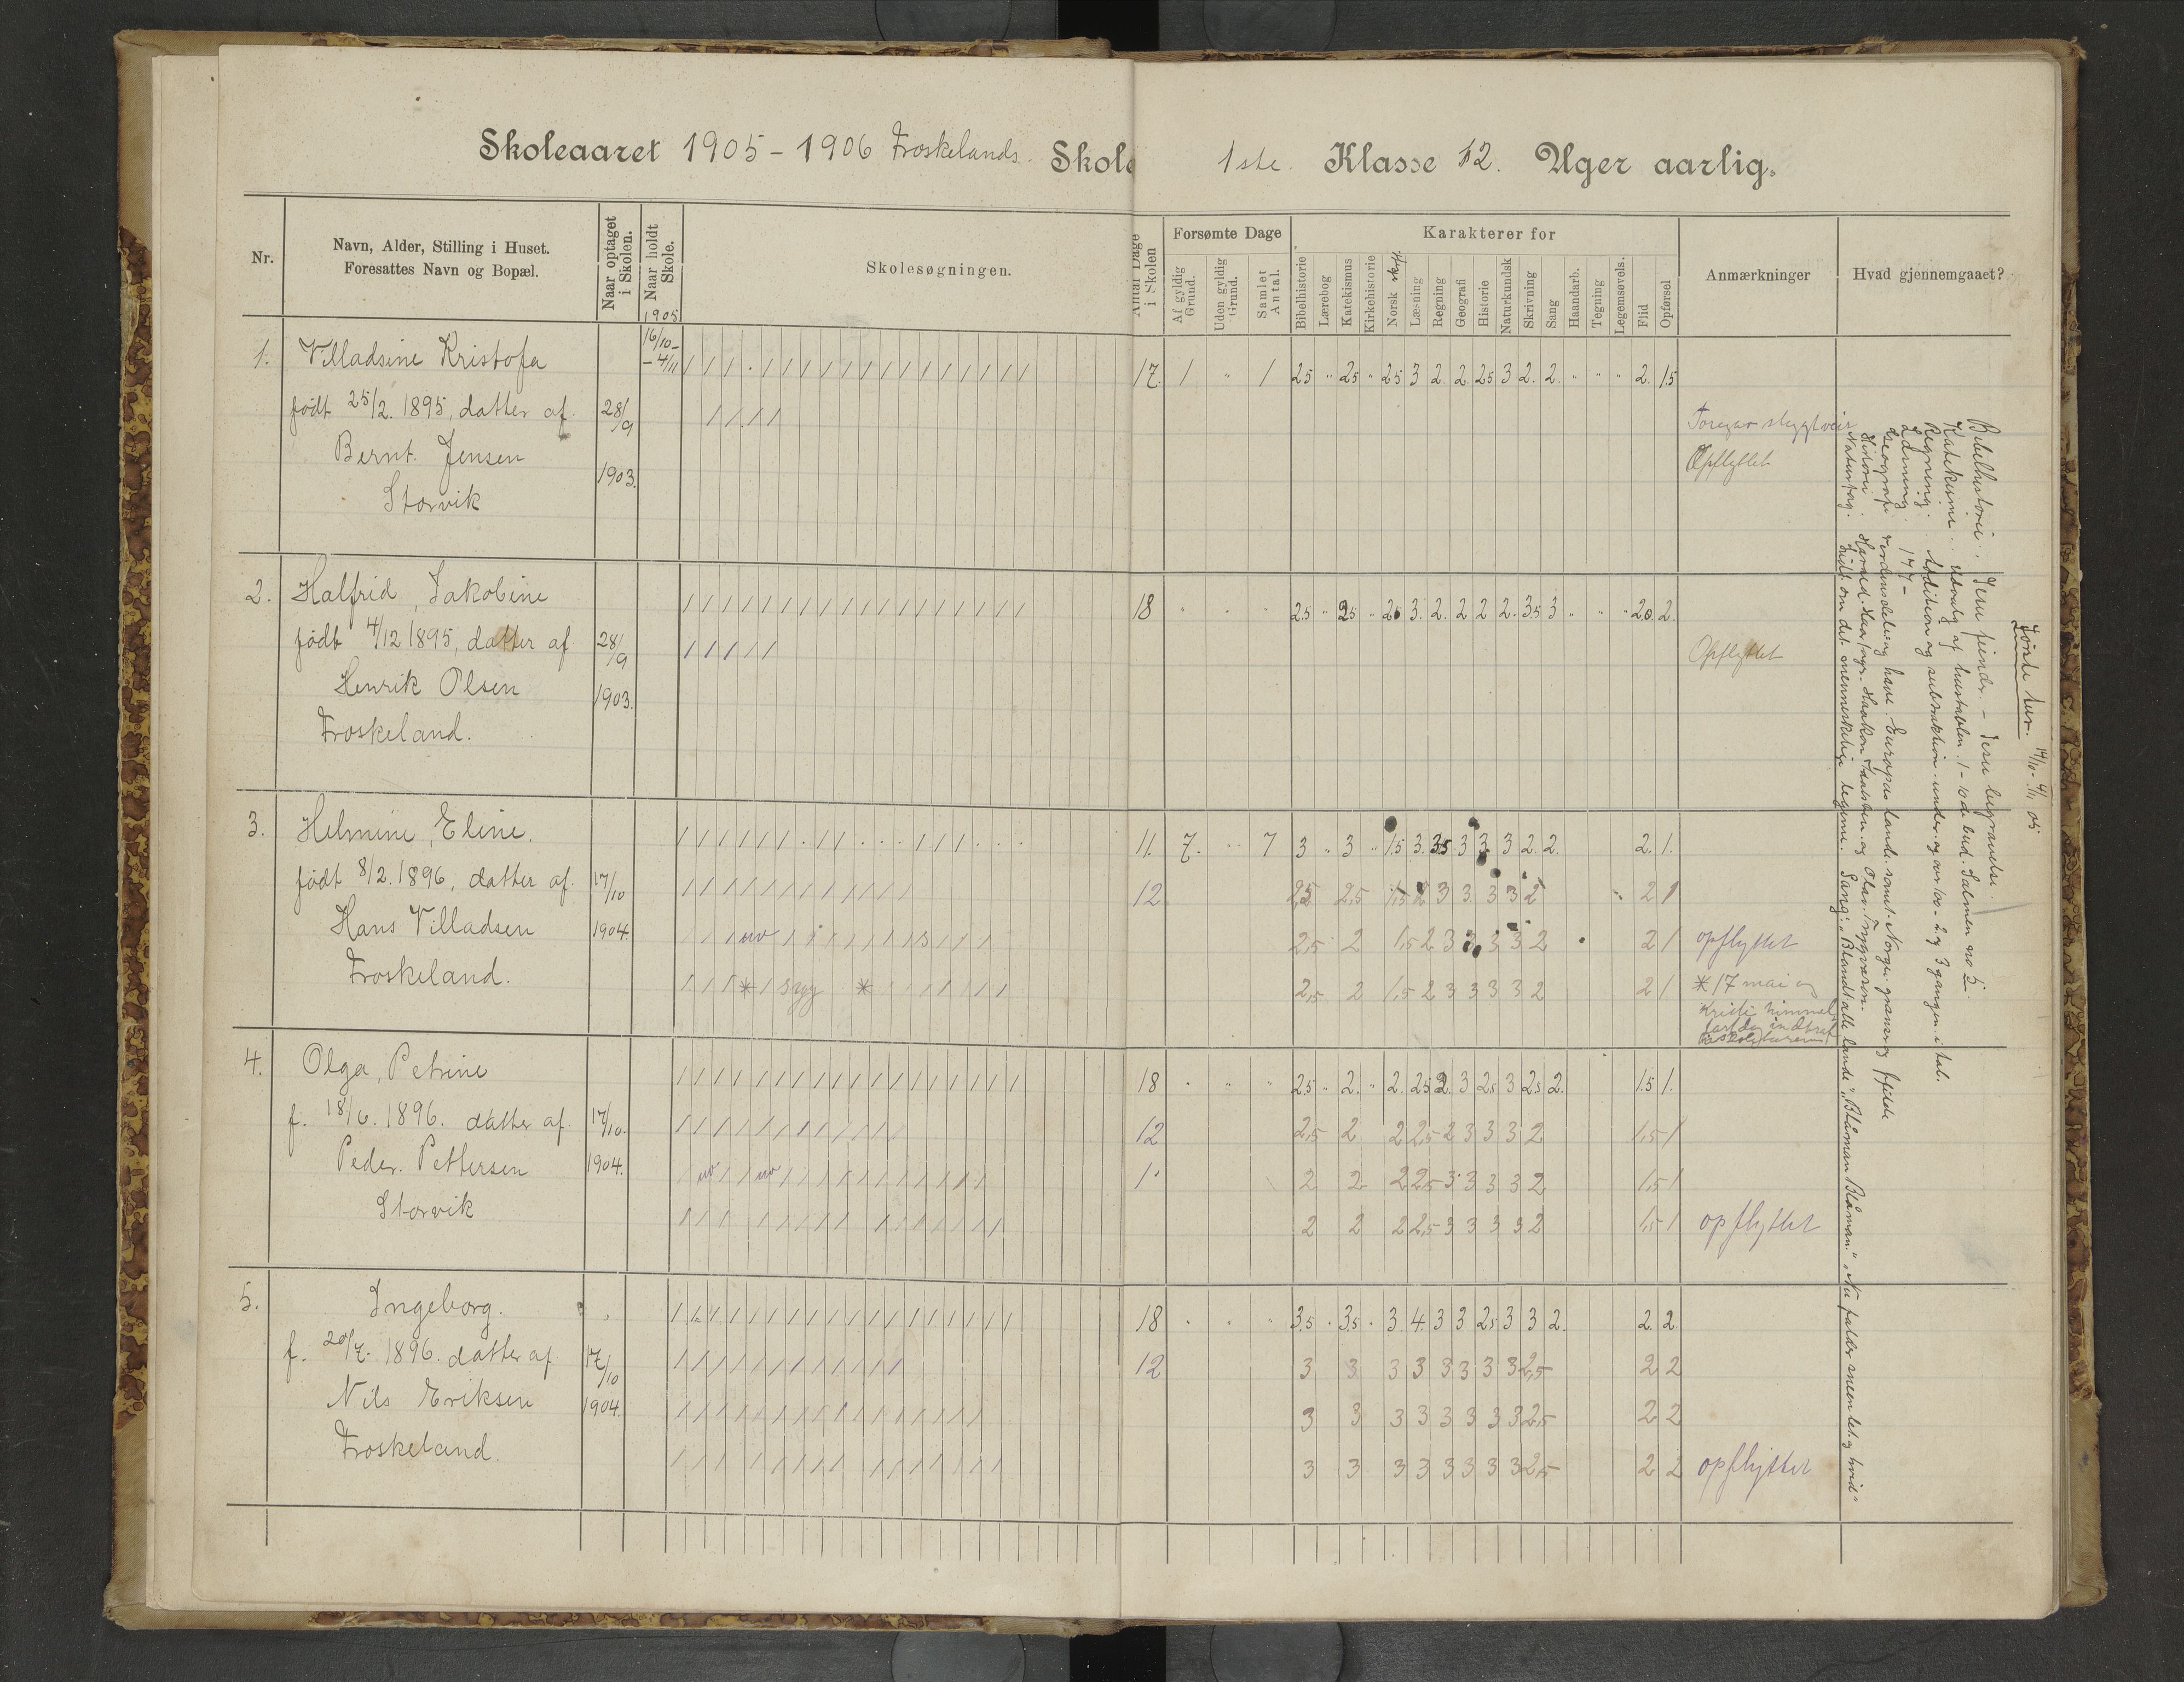 Skoleaaret 1905-1906 Froskelands. Skole
1ste. Klasse 12. Uger aarlig.
Nr.
Navn, Alder, Stilling i Huset.
Foresattes Navn og Bopæl.
Naar optaget i Skolen.
Naar holdt Skole.
1905
Skolesøgningen.
Antal Dage i Skolen
Forsømte Dage
Af gyldig Grund.
Uden gyldig Grund.
Samlet Antal.
Karakterer for
Bibelhistorie
Lærebog
Katekismus
Kirkehistorie
Norsk
Læsning
Regning
Geografi
Historie
Naturkundsk
Skrivning
Sang
Haandarb.
Tegning
Legemsøvels.
Flid
Opførsel
Anmærkninger
Hvad gjennemgaaet?
1. Villadsine Kristofa 16/10- 17. 1 " 1 2.5 " 2.5 " 2.5 3 2. 2. 2.5 3 2. 2. " " " 2. 1.5
- 4/11
født 25/2. 1895, datter af 28/9
Bernt. Jensen 1903. Opflyttet
Storvik
2. Halfrid, Jakobine 18 " " " 2.5 " 2.5 " 2.5 3. 2. 2 2 2. 3.5 3 " " " 2.0 2.
født 4/12 1895, datter af 28/9 Opflyttet
Henrik Olsen 1903.
Froskeland.
3. Helmine, Eline. 11. 7. " 7 3 " 3 " 1.5 3. 3.5 3 3 3 2. 2. 2. 1.
født 8/2. 1896, datter af 17/10 12 2,5 2,5 1,5 2 3 3 3 3 2 2 1
Hans Villadsen 1904. 2,5 2 1,5 2 3 3 3 3 2 2 1 opflyttet
Froskeland. 2,5 2 1,5 2 3 3 3 3 2 2 1 * 17 mai og
Kristi himmel
4. Olga, Petrine 18 " " " 2.5 " 2. " 2. 2.5 2. 3 2.5 3 2.5 2. 1.5 1.
f. 18/6. 1896. datter af 17/10. 12 2,5 2 2 2,5 2 3 3 3 2 1,5 1
Peder. Pettersen 1904. 2 2 2 2,5 3 3 3 3 2 1,5 1
Storvik 2 2 2 2,5 3 3 3 3 2 1,5 1 opflyttet
5. Ingeborg. 18 " " " 3.5 " 3.5 " 3. 4. 3 3 2.5 3 3 2. 2. 2.
f. 20/7. 1896. datter af 17/10 12 3 3 3 3 3 3 3 3 2,5 2 2
Nils Eriksen 1904. 3 3 3 3 3 3 3 3 2,5 2 2
Froskeland. 3 3 3 3 3 3 3 3 2,5 2 2 opflyttet
Bibelhistorie: Jesu fiender - Jesu begravelse.
Katekisme: Udvalg af hustavlen. 1-10de bud. Salmen no 5.
Regning: Addition og subtraktion under og over 100 - 2 og 3 gangen i tal.
Læsning: 177-
Geografi Verdensdele og have. Europas lande samt Norges grænser og fjelde
Historie. Harald Haarfagr. Haakon Adalsten. og Olav Trygvesøn.
Naturfag. Lidt om det menneskelige legeme. Sang: "Blandt alle lande", "Blåman Blåman", "Nu falder sneen tet og hvid"